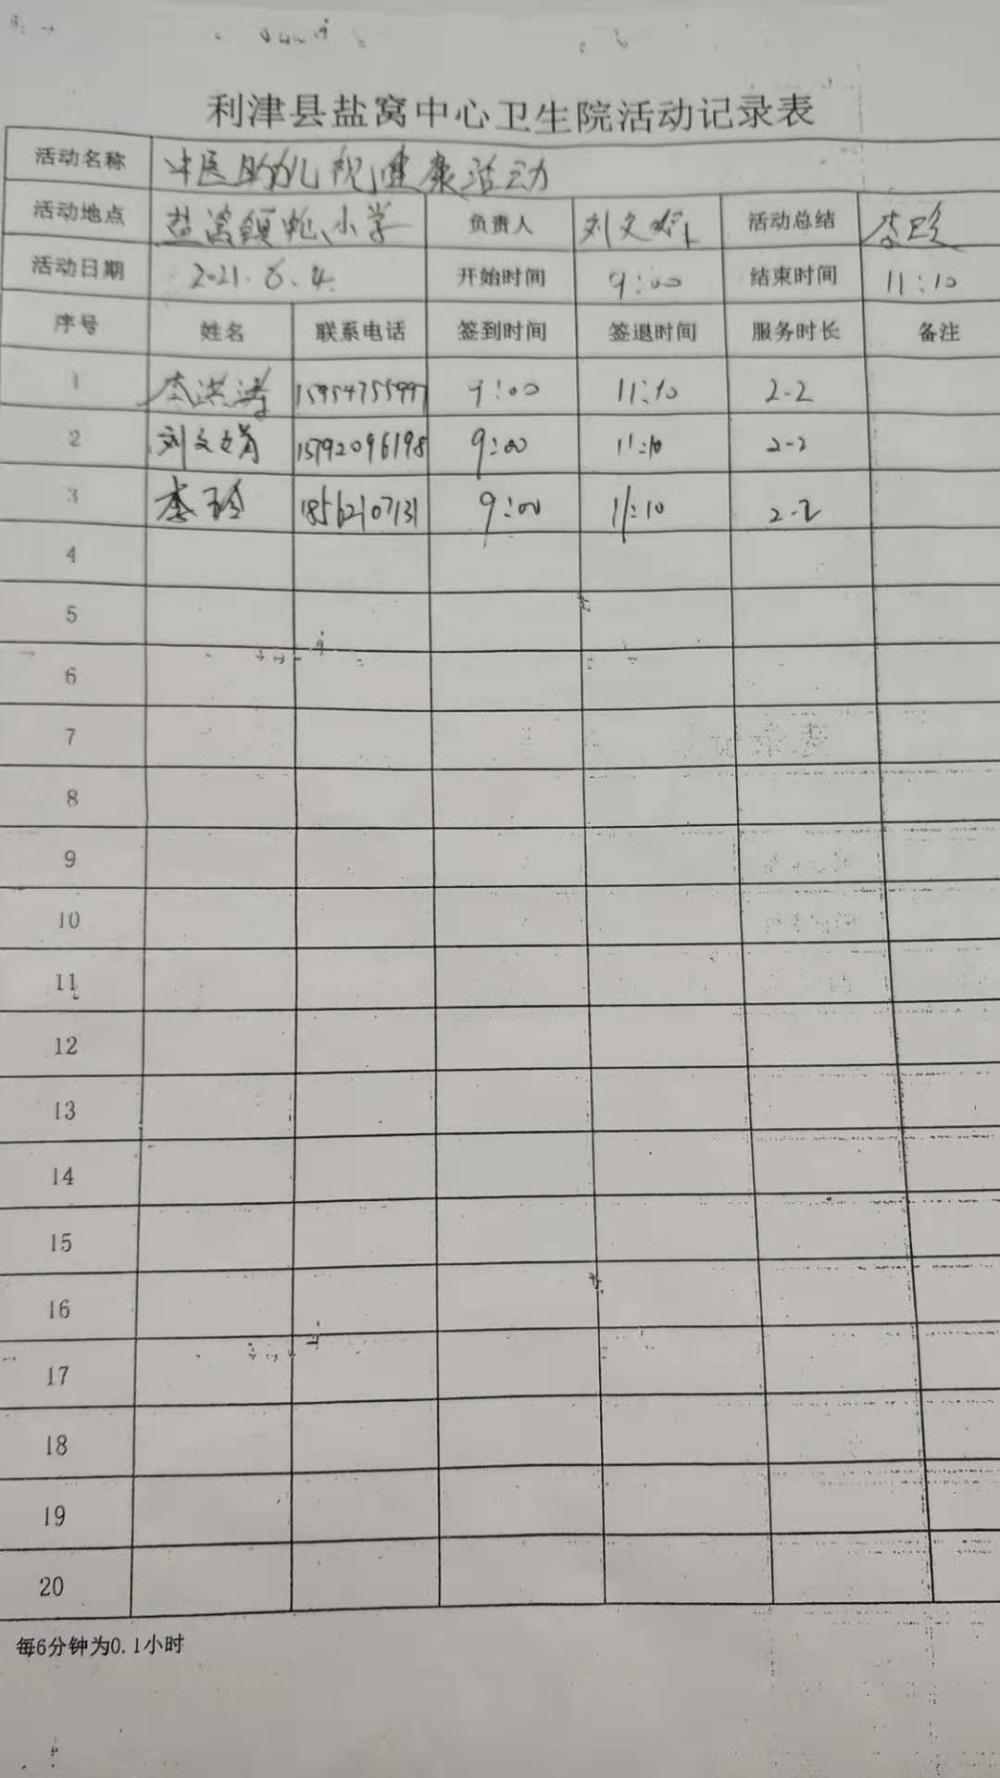 利津县盐窝中心卫生院活动记录表
活动名称 中医助儿视健康活动
活动地点 盐窝镇中心小学 负责人 刘文 活动总结 李玲
活动日期 2021.6.4 开始时间 9:00 结束时间 11:10
序号 姓名 联系电话 签到时间 签退时间 服务时长 备注
1 李洪涛 15954755997 9:00 11:10 2.2
2 刘文娟 15792096198 9:00 11:10 2.2
3 李玲 18562107131 9:00 11:10 2.2
4
5
6
7
8
9
10
11
12
13
14
15
16
17
18
19
20
每6分钟为0.1小时